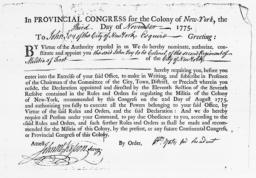 In PROVINCIAL CONGRESS for the Colony of New-York, the
third Day of November 1775.
To John Jay of the City of New York Esquire Greeting:
BY Virtue of the Authority reposed in us We do hereby nominate, authorize, constitute and appoint you the said John Jay to be Colonel of the second Regiment of
Militia of Foot of the City of New York
hereby requiring you, before you
enter into the Exercise of your said Office, to make in Writing, and subscribe in Presence
of the Chairman of the Committee of the City, Town, District, or Precinct wherein you
reside, the Declaration appointed and directed by the Eleventh Section of the Seventh
Resolve contained in the Rules and Orders for regulating the Militia of the Colony
of New-York, recommended by this Congress on the 22d Day of August 1775,
and authorizing you fully to execute all the Powers belonging to your said Office, by
Virtue of the said Rules and Orders, and the said Declaration: And we do hereby
require all Persons under your Command, to pay due Obedience to you, according to the
said Rules and Orders, and such further Rules and Orders as shall be made and recommended for the Militia of this Colony, by the present, or any future Continental Congress,
or Provincial Congress of this Colony.
Attested By Order, President